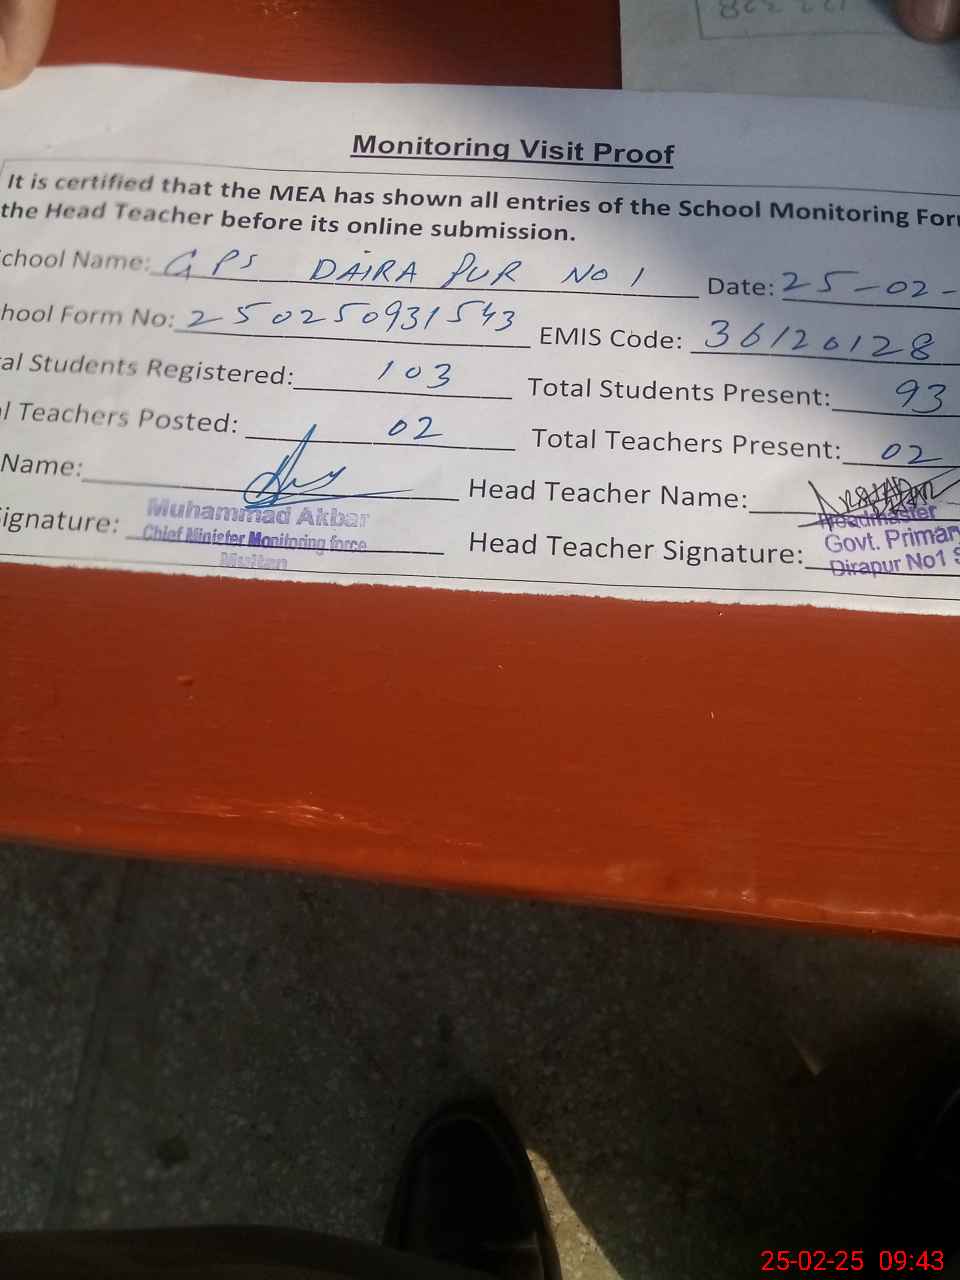 Monitoring Visit Proof
It is certified that the MEA has shown all entries of the School Monitoring For
the Head Teacher before its online submission.
chool Name: GPS DAIRA PUR NO 1 Date: 25-02-
hool Form No: 250250931543 EMIS Code: 36120128
al Students Registered: 103 Total Students Present: 93
l Teachers Posted: 02 Total Teachers Present: 02
Name: Head Teacher Name:
ignature: Head Teacher Signature:
Muhammad Akbar
Chief Minister Monitoring force
Multan
Headmaster
Govt. Primar
Dirapur No1 S
25-02-25 09:43